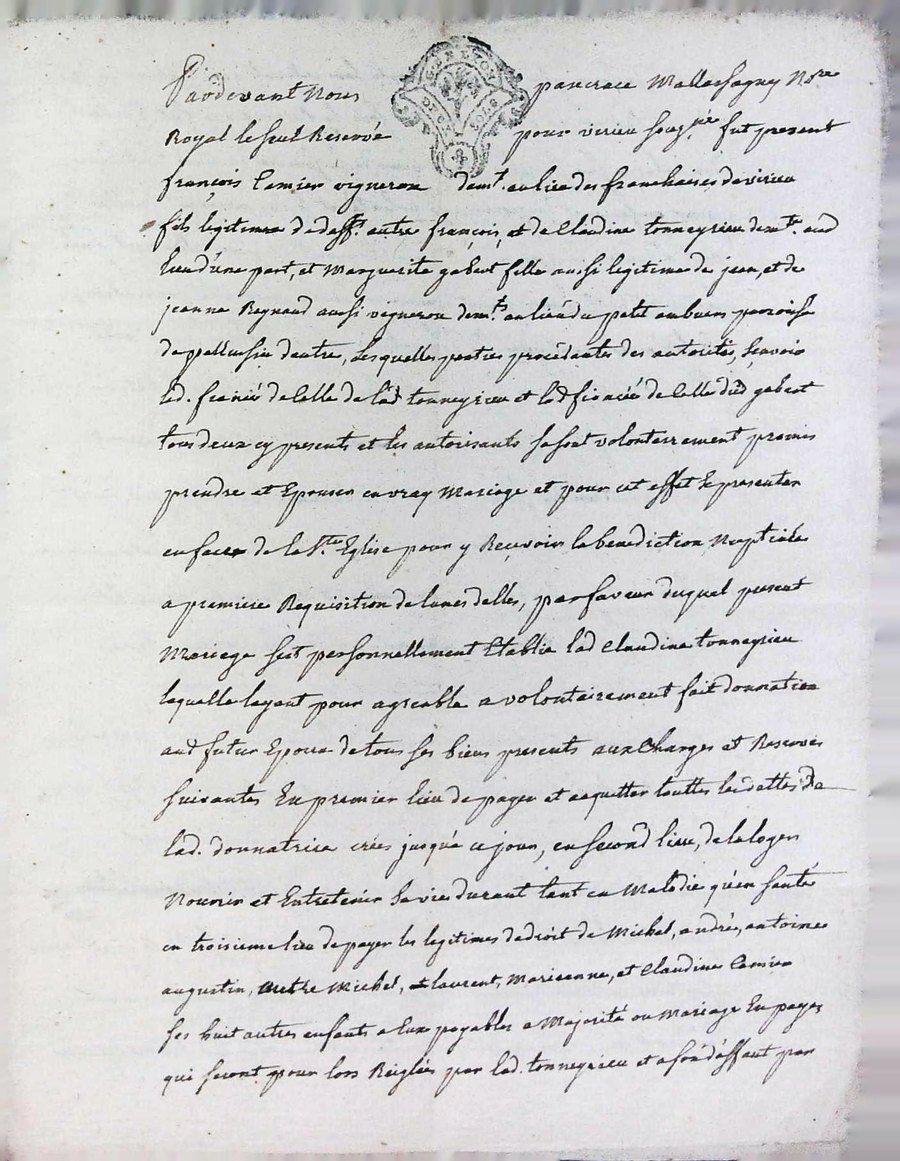 Pardevant Nous pancrace Mallassagny No.re
Royal le seul Reservé pour virieu souz.né fut present
françois Camier vigneron dem.t au lieu des franchaises de virieu
fils legitime de deff.t autre françois, et de Claudine tonneyrieu dem.te aud
lieu d'une part, et Marguerite gabert fille aussi legitime de jean, et de
jeanne Regnaud aussi vigneron dem.ts au lieu du petit embuen paroisse
de pellussin d'autre, Lesquelles parties procédantes des autorités, sçavoir
led. fiancé de celle de lad tonneyrieu et lad fiancée de celle dud gabert
tous deux cy presents et les autorisants se sont volontairement promis
prendre et Epouser en vray Mariage et pour cet effet se presenter
en face de la S.te Eglise pour y Reçevoir la benediction Nuptiale
a premiere Requisition de l'un et d'elles, par faveur duquel present
Mariage s'est personnellement Etablie lad Claudine tonneyrieu
laquelle l'ayant pour agreable a volontairement fait donnation
aud futur Epoux de tous ses biens presents aux Charges et Reserves
suivantes En premier lieu de payer et acquitter touttes les dettes De
lad. donnatrice créés jusqu'a ce jour, en second lieu, de la loger
Nourrir et Entretenir sa vie durant tant en Maladie qu'en santé
en troisieme lieu de payer les legitimes de droit de Michel, andré, antoine
augustin, autre Michel, et laurent, Marieanne, et Claudine Camier
ses huit autres enfants a Eux payables a Majorité ou Mariage En payes
qui seront pour lors Reiglées par lad. tonneyrieu et a son déffaut par